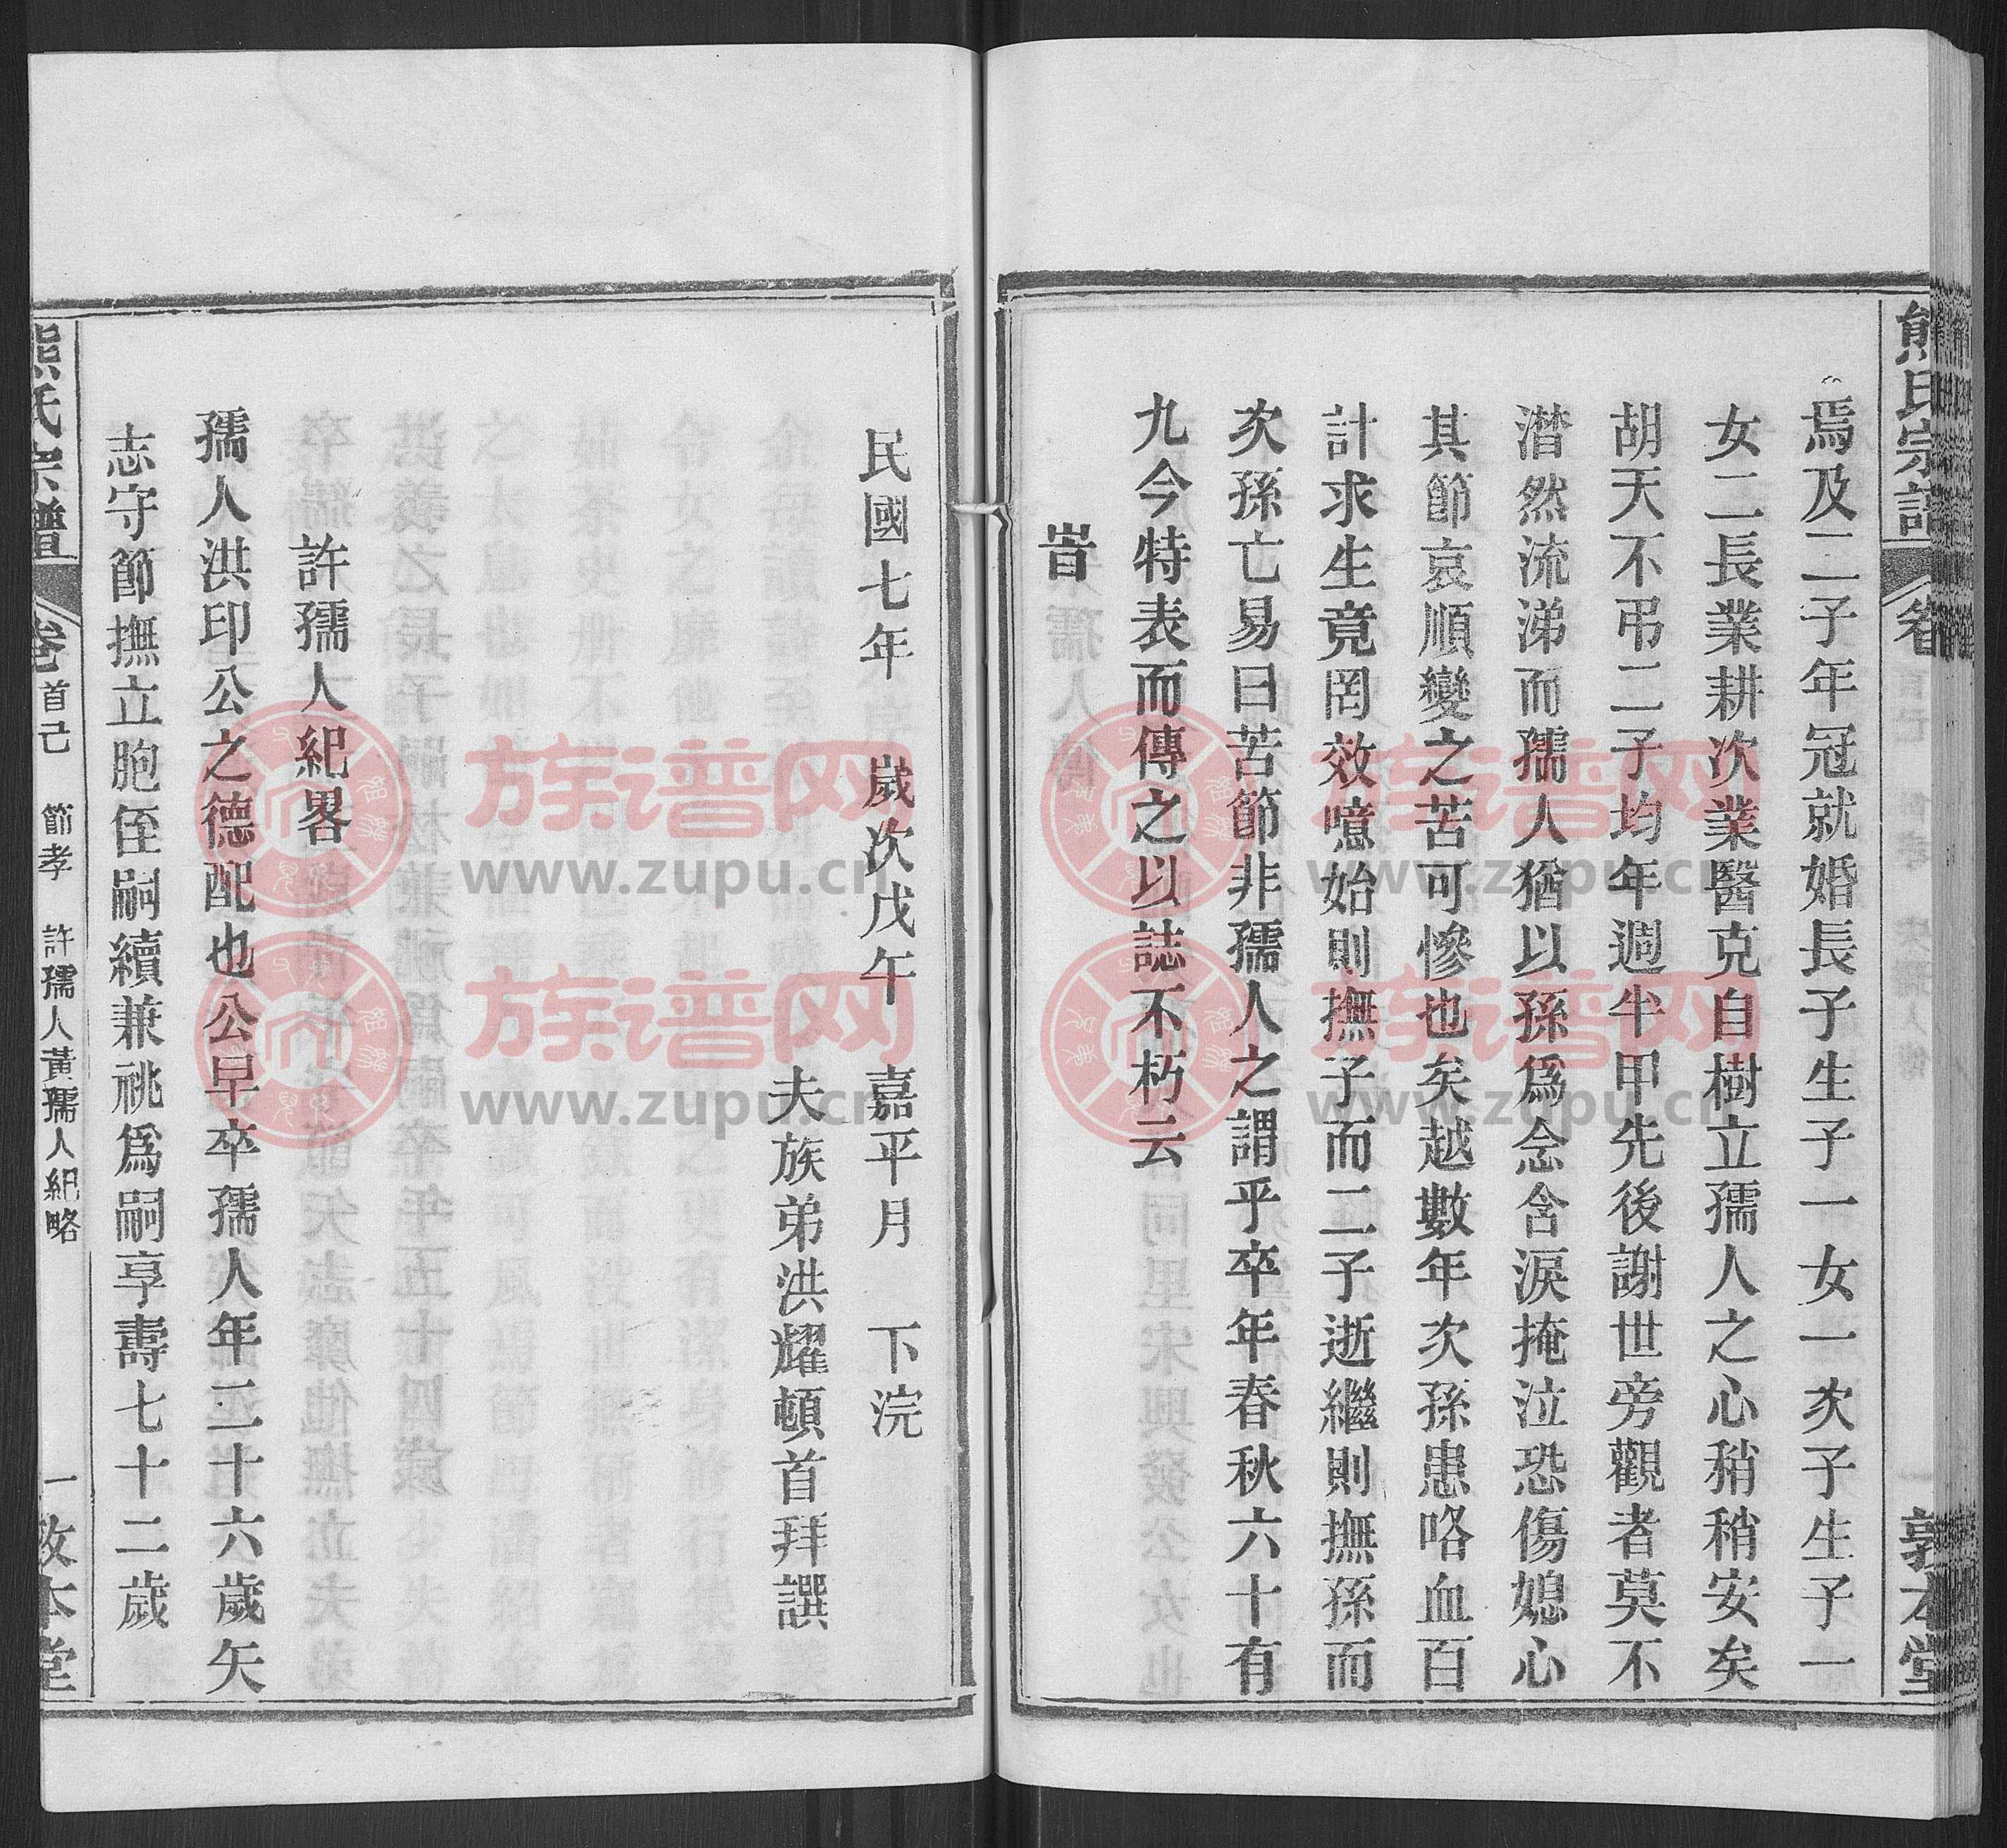 熊氏宗譜
卷
敦本堂
焉及二子年冠就婚長子生子一女一次子生子一
女二長業耕次業醫克自樹立孺人之心稍稍安矣
胡天不弔二子均年週半甲先後謝世旁觀者莫不
潸然流涕而孺人猶以孫爲念含淚掩泣恐傷媳心
其節哀順變之苦可慘也矣越數年次孫患咯血百
計求生竟罔效噫始則撫子而二子逝繼則撫孫而
次孫亡易曰苦節非孺人之謂乎卒年春秋六十有
九今特表而傳之以誌不朽云
旹
民國七年 嵗次戊午 嘉平月 下浣
夫族弟洪耀頓首拜譔
許孺人紀畧
孺人洪印公之德配也公早卒孺人年二十六歲矢
志守節撫立胞侄嗣續兼祧爲嗣享壽七十二歲
熊氏宗譜
卷首己 節孝 許孺人黃孺人紀略
一敦本堂
族谱网
www.zupu.cn
族谱网
www.zupu.cn
族谱网
www.zupu.cn
族谱网
www.zupu.cn